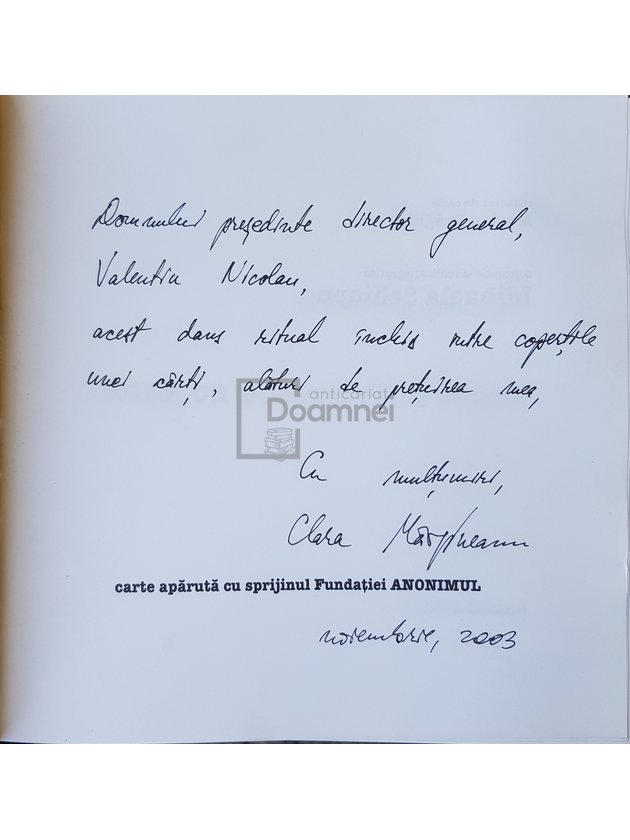 Domnului președinte director general,
Valentin Nicolau,
acest dans ritual închis între coperțile
unei cărți, alături de prețuirea mea,
anticariat
Doamnei
Cu mulțumiri,
Clara Mărgineanu
carte apărută cu sprijinul Fundației ANONIMUL
noiembrie, 2003